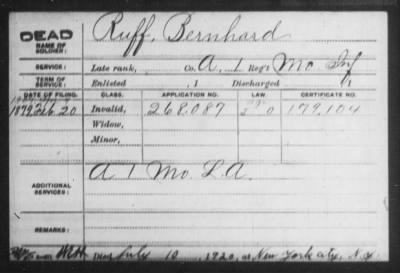 DEAD
NAME OF SOLDIER: Ruff, Bernhard
SERVICE: Late rank, Co. A, 1 Reg't Mo Inf
TERM OF SERVICE: Enlisted , 1 Discharged , 1
DATE OF FILING. CLASS. APPLICATION NO. LAW. CERTIFICATE NO.
1879 Feb. 20 Invalid, 268.087 179,104
Widow,
Minor,
ADDITIONAL SERVICES: A 1 Mo. L.A.
REMARKS:
Died July 10, 1920, at New York city, N.Y.